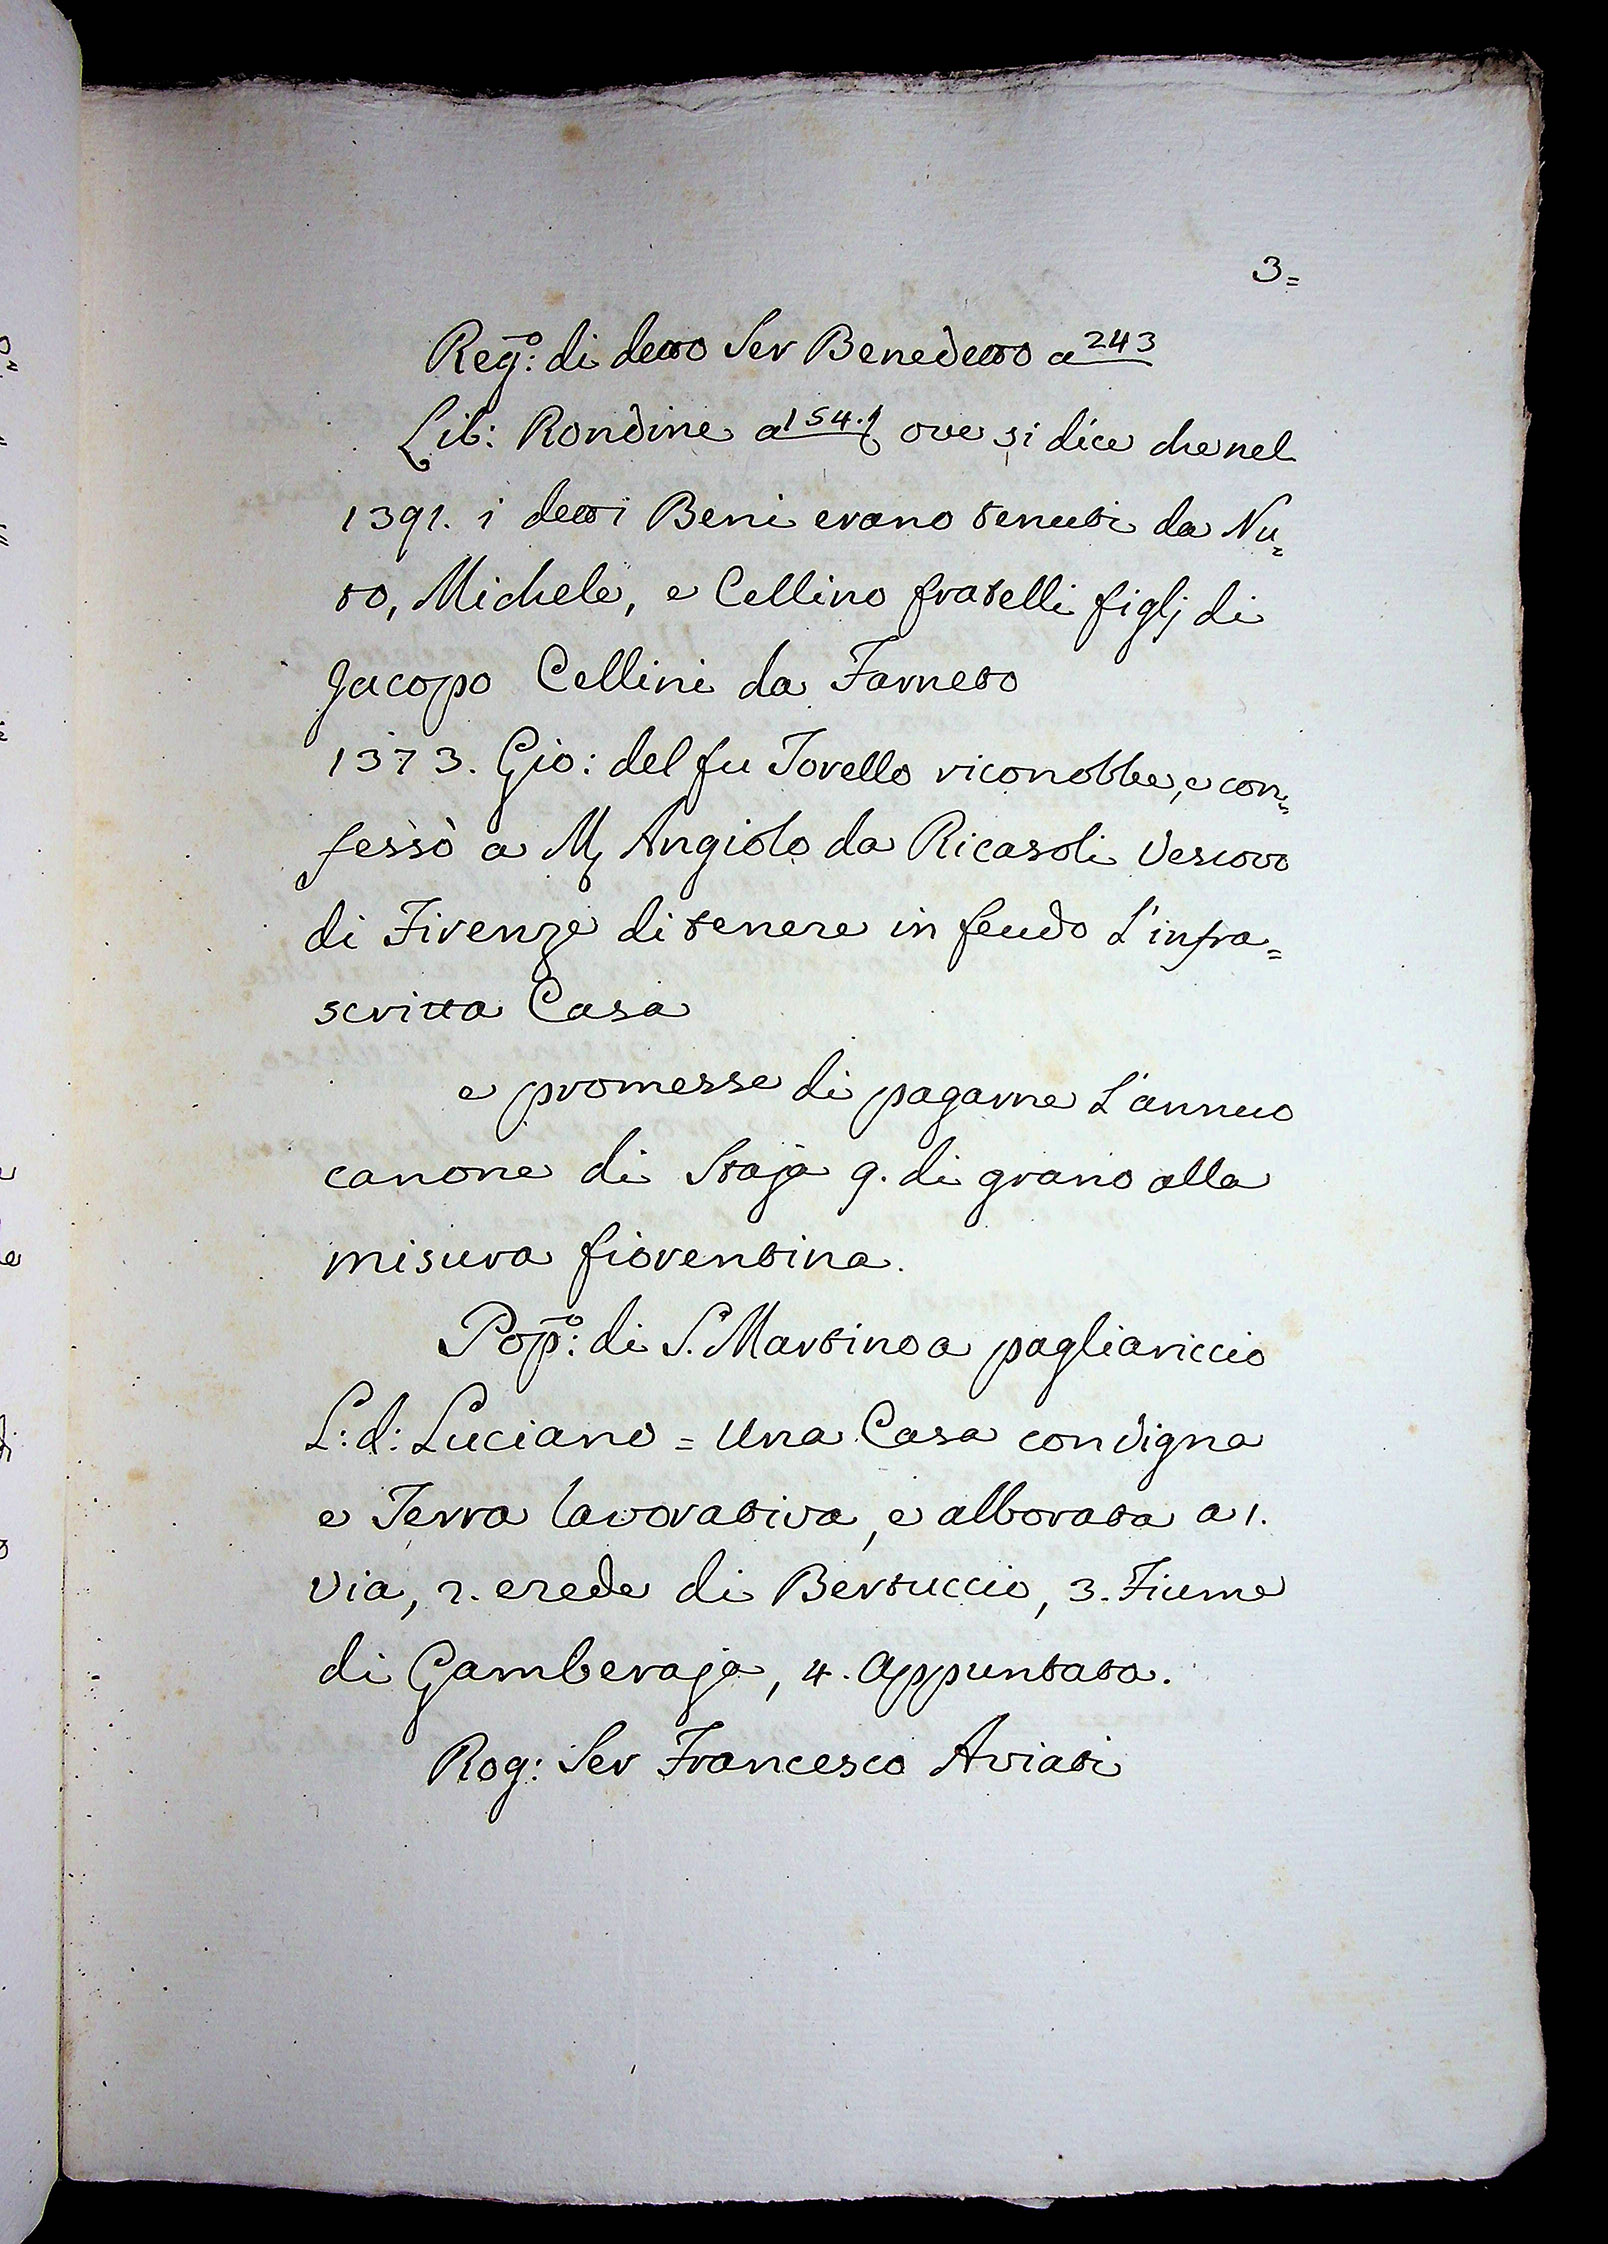 3=
Reg.º: di detto Ser Benedetto a 243
Lib: Rondine a 154.t ove si dice che nel
1391. i detti Beni erano tenuti da Nu=
to, Michele, e Cellino fratelli figlj di
Jacopo Cellini da Farneto
1373. Gio: del fu Torello riconobbe, e con=
fessò a M. Angiolo da Ricasoli Vescovo
di Firenze di tenere in feudo l'infra=
scritta Casa
e promesse di pagarne l'annuo
canone di Staja 9. di grano alla
misura fiorentina.
Pop.º: di S. Martino a pagliariccio
L: d: Luciano = Una Casa con vigna
e Terra lavorativa, e alborata a 1.
via, 2. erede di Bertuccio, 3. Fiume
di Gamberaja, 4. Appuntata.
Rog: Ser Francesco Aviati